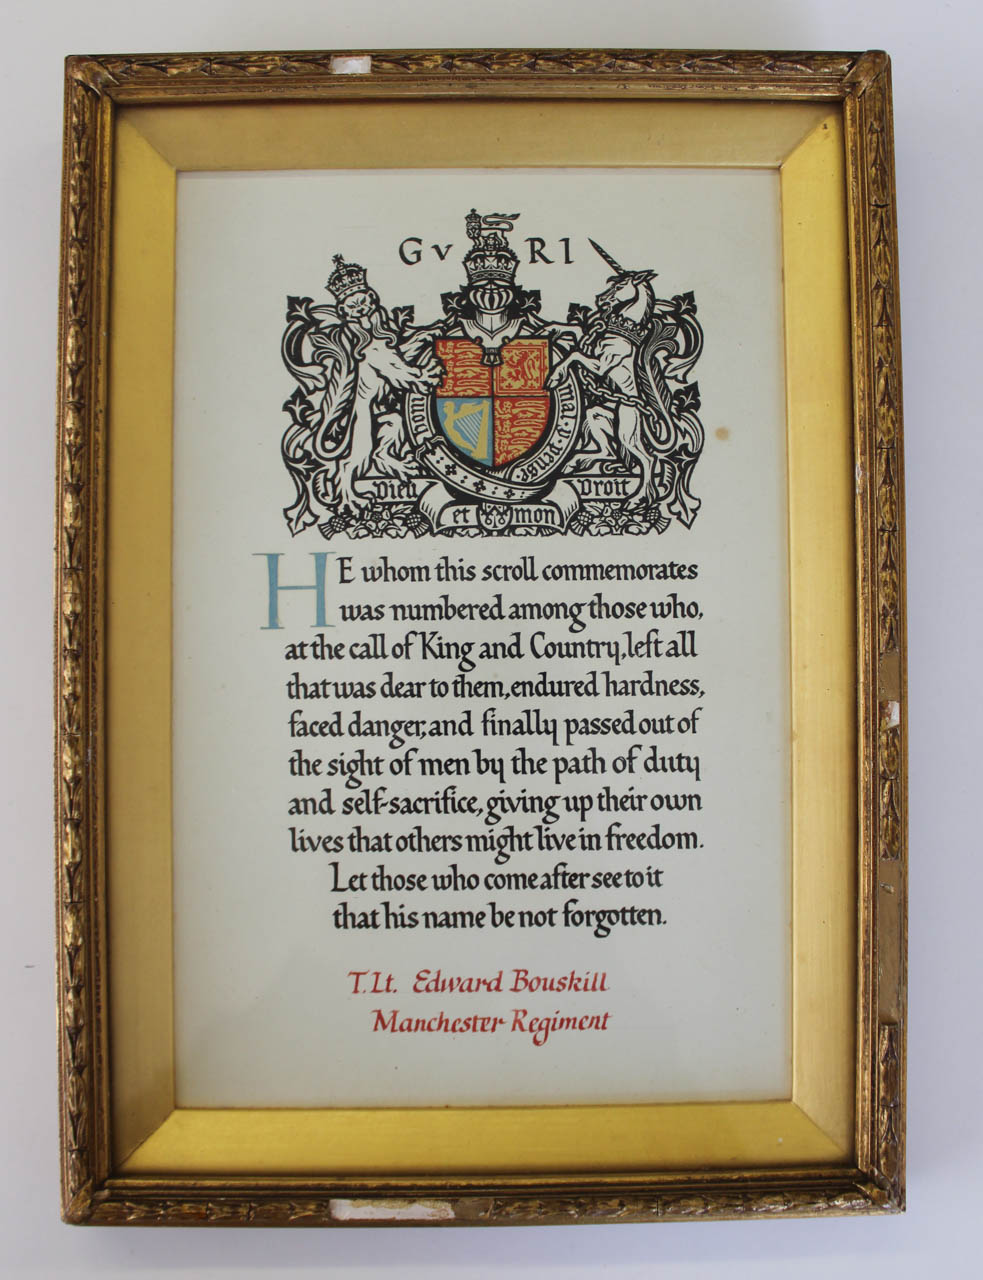 G V R I
Honi soit qui mal y pense
Dieu et mon Droit
HE whom this scroll commemorates
was numbered among those who,
at the call of King and Country, left all
that was dear to them, endured hardness,
faced danger, and finally passed out of
the sight of men by the path of duty
and self-sacrifice, giving up their own
lives that others might live in freedom.
Let those who come after see to it
that his name be not forgotten.
T. Lt. Edward Bouskill
Manchester Regiment